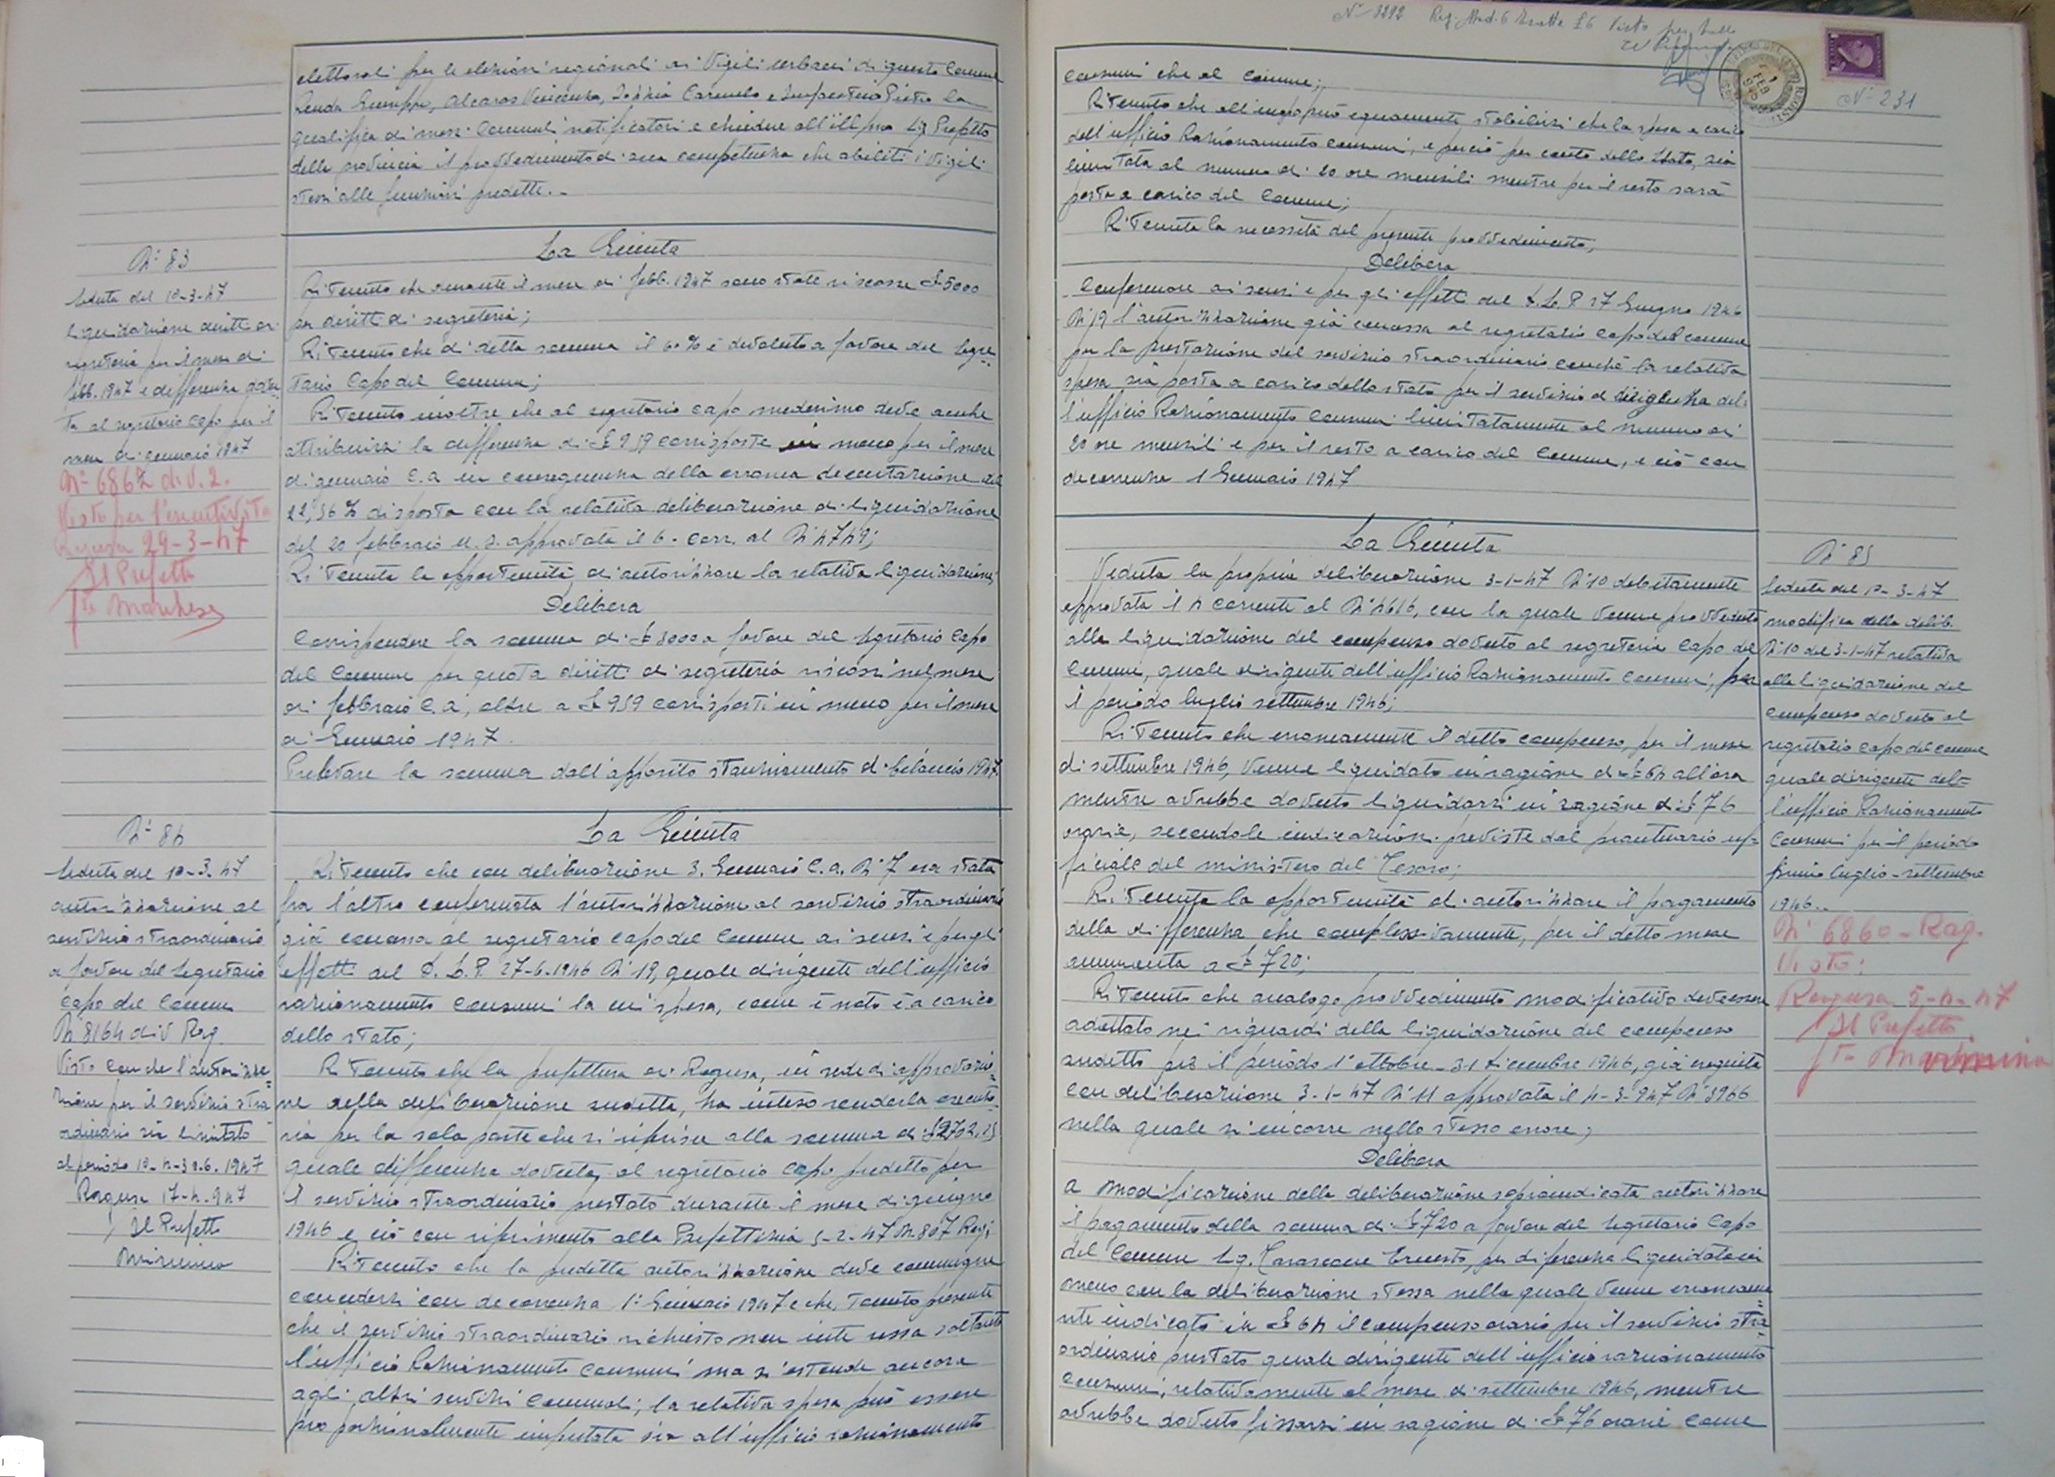 elettorali per le elezioni regionali ai Vigili urbani di questo Comune
la
qualifica di messi Comunali notificatori e chiedere all'Ill.mo Sig Prefetto
della provincia il provvedimento di sua competenza che abiliti i Vigili
stessi alle funzioni predette.-
N° 83
Seduta del 10-3-47
liquidazione diritti di
segreteria per il mese di
febb. 1947 e differenza
al segretario capo per il
mese di Gennaio 1947
N° 6862 div. 2.
Visto per l'esecutività
Ragusa 29-3-47
Il Prefetto
La Giunta
Ritenuto che durante il mese di febb. 1947 sono state riscosse £ 5000
per diritti di segreteria;
Ritenuto che di detta somma il 60% è devoluto a favore del Segre-
tario Capo del Comune;
Ritenuto inoltre che al segretario capo medesimo deve anche
attribuirsi la differenza di £ 959 corrisposte in meno per il mese
di gennaio c.a in conseguenza della erronea decurtazione del
22,56% disposta con la relativa deliberazione di liquidazione
del 20 febbraio u.s. approvata il 6. corr. al N° 4749;
Ritenuta la opportunità di autorizzare la relativa liquidazione;
Delibera
Corrispondere la somma di £ 3000 a favore del Segretario Capo
del Comune per quota diritti di segreteria riscossi nel mese
di febbraio c.a, oltre a £ 959 corrisposti in meno per il mese
di Gennaio 1947.
Prelevare la somma dall'apposito stanziamento di bilancio 1947.
N° 84
Seduta del 10-3.47
autorizzazione al
servizio straordinario
a favore del Segretario
Capo del Comune
N° 8164 div Rag.
Visto con che l'autorizza-
zione per il servizio stra
ordinario sia limitato
al periodo 10-4-30.6.1947
Ragusa 17-4-947
Il Prefetto
La Giunta
Ritenuto che con deliberazione 3. Gennaio c.a. N° 7 era stata
fra l'altro confermata l'autorizzazione al servizio straordinario
già concessa al segretario capo del Comune ai sensi e per gli
effetti del D. L. P. 27-6-1946 N° 19, quale dirigente dell'ufficio
razionamento Consumi la cui spesa, come è noto è a carico
dello stato;
Ritenuto che la prefettura di Ragusa, in sede di approvazio-
ne della deliberazione sudetta, ha inteso renderla esecuto-
ria per la sola parte che si riferisce alla somma di £ 2702,25
quale differenza dovuta al segretario capo predetto per
il servizio straordinario prestato durante il mese di giugno
1946 e ciò con riferimento alla Prefettizia 5-2-47 N. 807 Rag;
Ritenuto che la predetta autorizzazione deve comunque
concedersi con decorrenza 1° Gennaio 1947 e che, tenuto presente
che il servizio straordinario richiesto non interessa soltanto
l'ufficio Razionamento Consumi ma si estende ancora
agli altri servizi Comunali, la relativa spesa può essere
proporzionalmente imputata sia all'ufficio razionamento
N° 3292 Visto per bollo
N° 231
consumi che al Comune;
Ritenuto che all'uopo può equamente stabilirsi che la spesa a carico
dell'ufficio Razionamento Consumi, e perciò per conto dello Stato, sia
limitata al numero di 20 ore mensili mentre per il resto sarà
posta a carico del Comune;
Ritenuta la necessità del presente provvedimento;
Delibera
Confermare ai sensi e per gli effetti del D.L.P. 27 Giugno 1946
N° 19 l'autorizzazione già concessa al segretario capo del comune
per la prestazione del servizio straordinario conchè la relativa
spesa sia posta a carico dello stato per il servizio di dirigenza del-
l'ufficio Razionamento Consumi limitatamente al numero di
20 ore mensili e per il resto a carico del Comune, e ciò con
decorrenza 1 Gennaio 1947
La Giunta
Veduta la propria deliberazione 3-1-47 N° 10 debitamente
approvata il 4 corrente al N° 4616, con la quale venne provveduto
alla liquidazione del compenso dovuto al segretario Capo del
Comune, quale dirigente dell'ufficio Razionamento Consumi, per
il periodo luglio settembre 1946;
Ritenuto che erroneamente il detto compenso, per il mese
di settembre 1946, venne liquidato in ragione di £ 64 all'ora
mentre avrebbe dovuto liquidarsi in ragione di £ 76
orarie, secondo le indicazioni previste dal prontuario uf-
ficiale del ministero del Tesoro;
Ritenuta la opportunità di autorizzare il pagamento
della differenza che complessivamente, per il detto mese
ammonta a £ 720;
Ritenuto che analogo provvedimento modificativo deve essere
adottato nei riguardi della liquidazione del compenso
sudetto per il periodo 1° ottobre-31 Dicembre 1946, già eseguita
con deliberazione 3-1-47 N° 11 approvata il 4-3-947 N° 3966
nella quale si incorre nello stesso errore;
Delibera
a modificazione della deliberazione sopraindicata autorizzare
il pagamento della somma di £ 720 a favore del Segretario Capo
del Comune Sig. Ernesto, per differenza liquidata in
meno con la deliberazione stessa nella quale venne erroneame
nte indicato in £ 64 il compenso orario per il servizio stra-
ordinario prestato quale dirigente dell'ufficio razionamento
consumi, relativamente al mese di settembre 1946, mentre
avrebbe dovuto fissarsi in ragione di £ 76 orarie come
N° 85
Seduta del 10-3-47
modifica della delib.
N° 10 del 3-1-47 relativa
alla liquidazione del
compenso dovuto al
segretario capo del comune
quale dirigente del-
l'ufficio Razionamento
Consumi per il periodo
luglio-settembre
1946..
N° 6860-Rag.
Visto:
Ragusa 5-4-47
Il Prefetto